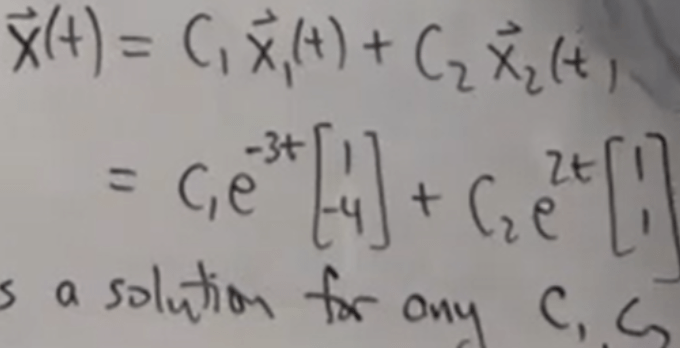 x⃗(t) = C₁ x⃗₁(t) + C₂ x⃗₂(t)
= C₁e^{-3t} [1 -4] + C₂e^{2t} [1 1]
s a solution for any C₁, C₂